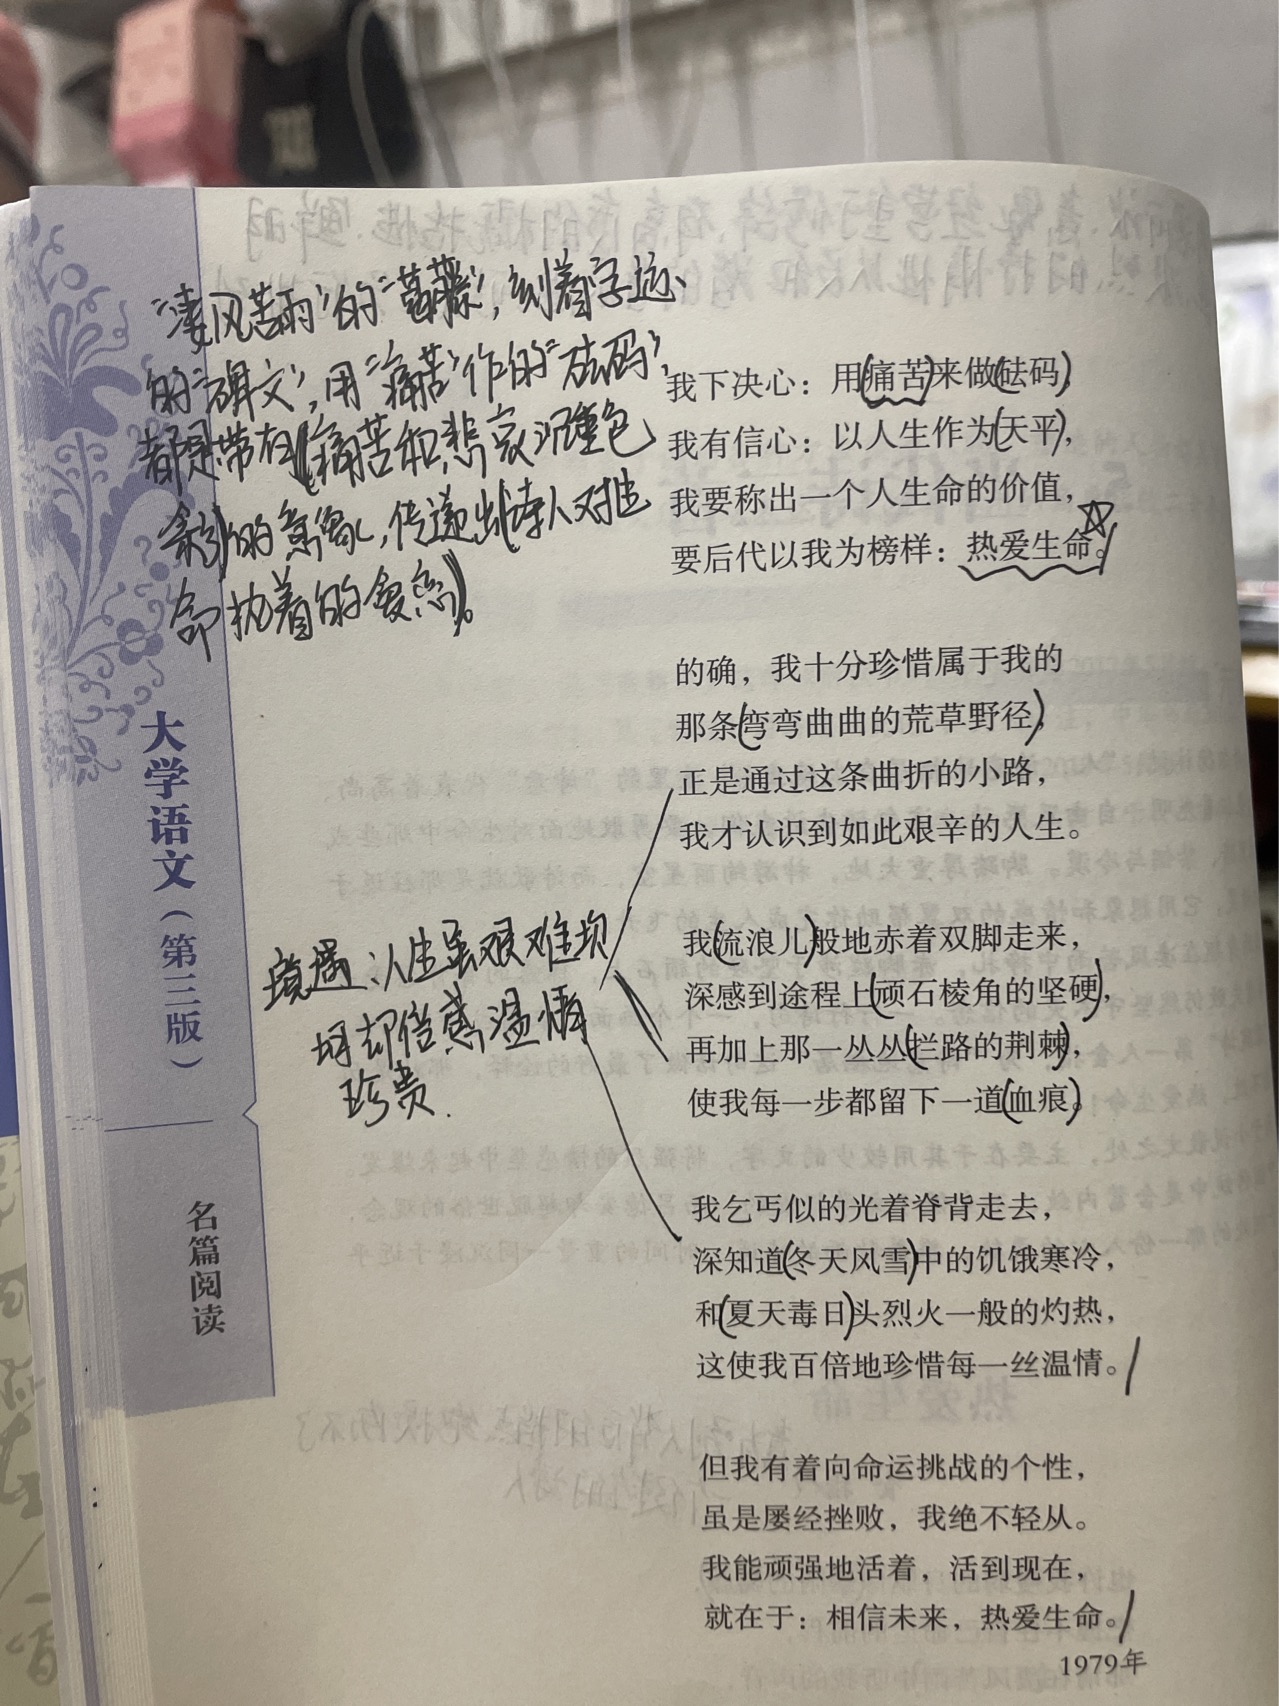 “凄风苦雨”的“葛藤”，刻着字迹、
的“碑文”，用“痛苦”作的“砝码”，
都是带有(痛苦和悲哀沉重色
彩)的意象，传递出(诗人对生
命执着的眷恋)。
我下决心：用(痛苦)来做(砝码)，
我有信心：以人生作为(天平)，
我要称出一个人生命的价值，
要后代以我为榜样：热爱生命。
的确，我十分珍惜属于我的
那条(弯弯曲曲的荒草野径)，
正是通过这条曲折的小路，
我才认识到如此艰辛的人生。
境遇：人生虽艰难坎
坷却倍感温情
珍贵.
我(流浪儿)般地赤着双脚走来，
深感到途程上(顽石棱角的坚硬)，
再加上那一丛丛(拦路的荆棘)，
使我每一步都留下一道(血痕)。
我乞丐似的光着脊背走去，
深知道(冬天风雪)中的饥饿寒冷，
和(夏天毒日)头烈火一般的灼热，
这使我百倍地珍惜每一丝温情。
但我有着向命运挑战的个性，
虽是屡经挫败，我绝不轻从。
我能顽强地活着，活到现在，
就在于：相信未来，热爱生命。
1979年
大学语文（第三版）
名篇阅读